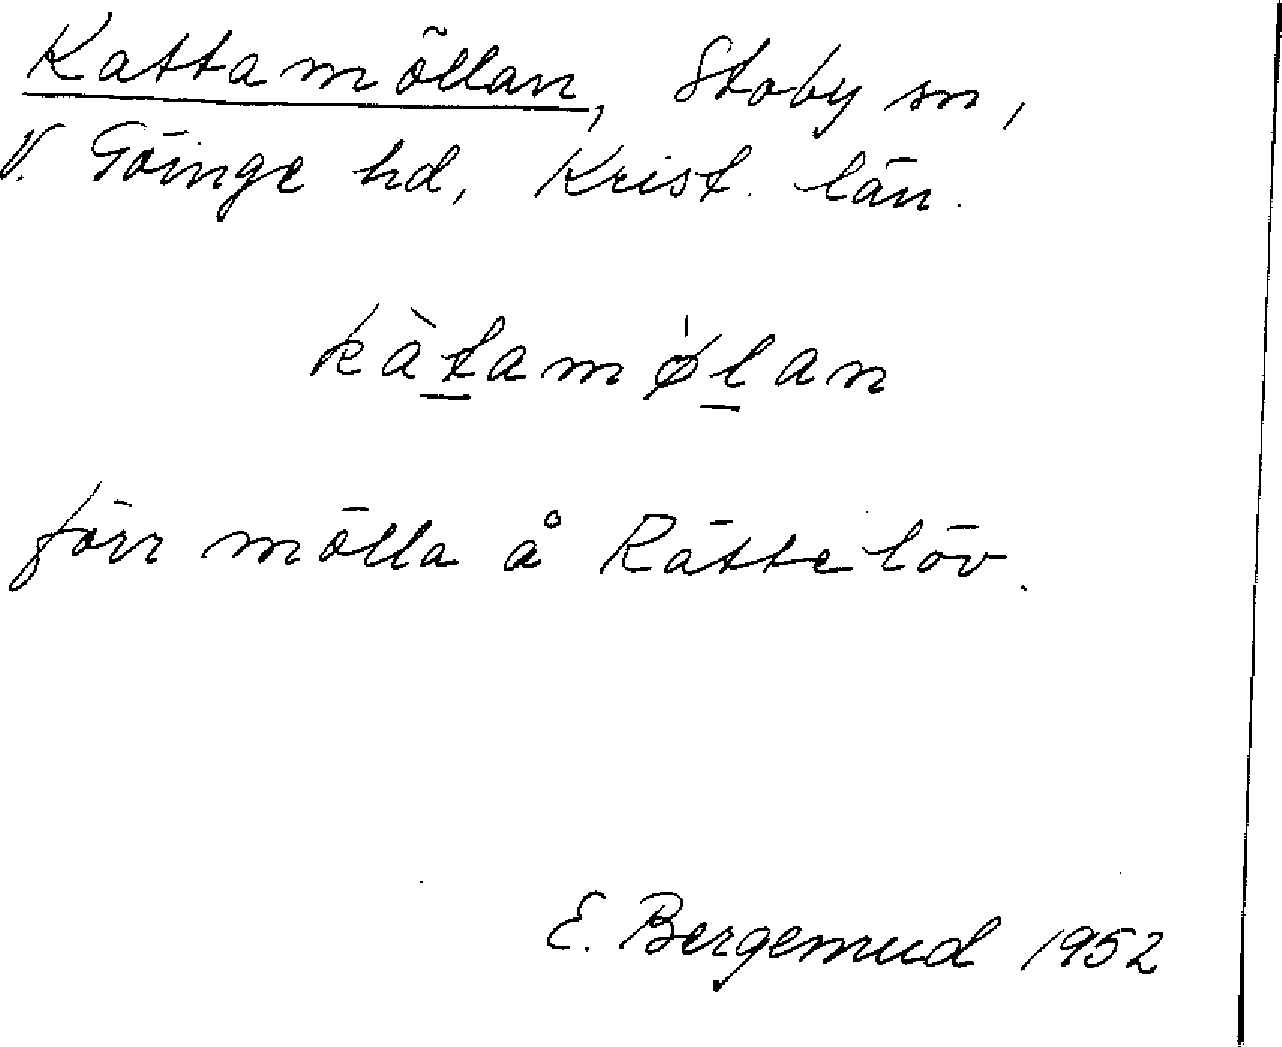 Kattamöllan, Stoby sn,
V. Göinge hd, Krist. län.
kàtamølan
förr mölla å Rättelöv.
E. Bergemud 1952